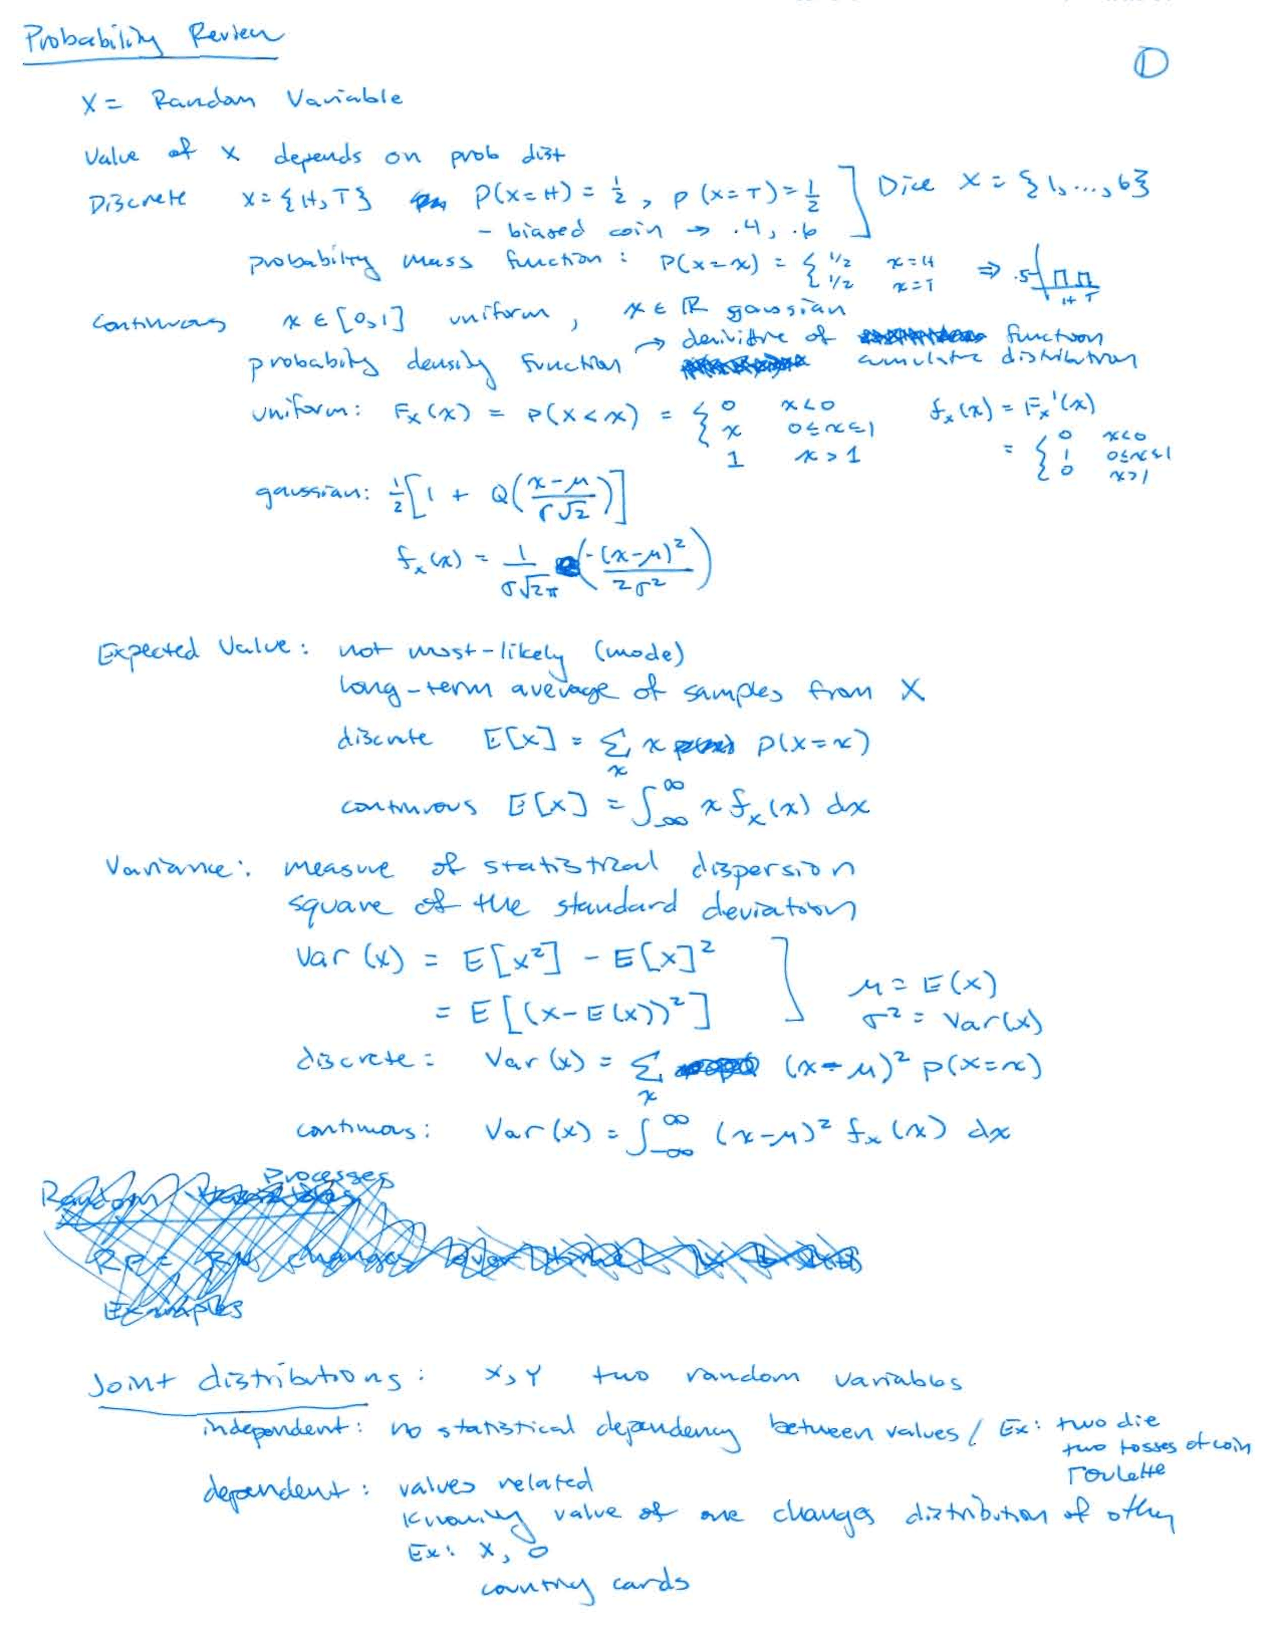 Probability Review
①
X = Random Variable
Value of X depends on prob dist
Discrete X = {H, T} P(X=H) = 1/2, P(X=T) = 1/2 ] Dice X = {1, ..., 6}
- biased coin → .4, .6
probability mass function: P(X=x) = { 1/2 x=H ⇒ .5
1/2 x=T H T
Continuous x ∈ [0,1] uniform, x ∈ ℝ gaussian
probabity density function → derivitive of function
cumulative distribution
uniform: F_X(x) = P(X<x) = { 0 x<0 f_X(x) = F_X'(x)
x 0≤x≤1 = { 0 x<0
1 x>1 1 0≤x≤1
0 x>1
gaussian: 1/2 [1 + Q((x-μ)/(σ√2))]
f_X(x) = 1/(σ√2π) e(-(x-μ)²/2σ²)
Expected Value: not most-likely (mode)
long-term average of samples from X
discrete E[X] = Σ_x x P(X=x)
continuous E[X] = ∫_{-∞}^{∞} x f_X(x) dx
Variance: measure of statistical dispersion
square of the standard deviation
Var(X) = E[X²] - E[X]²
= E[(X-E(X))²] ] μ = E(X)
σ² = Var(X)
discrete: Var(X) = Σ_x (x-μ)² P(X=x)
continuous: Var(X) = ∫_{-∞}^{∞} (x-μ)² f_X(x) dx
Processes
Random
RP = RV changes over time
Examples
Joint distributions: X, Y two random variables
independent: no statistical dependency between values / Ex: two die
two tosses of coin
roulette
dependent: values related
Knowing value of one changes distribution of other
Ex: X, O
counting cards